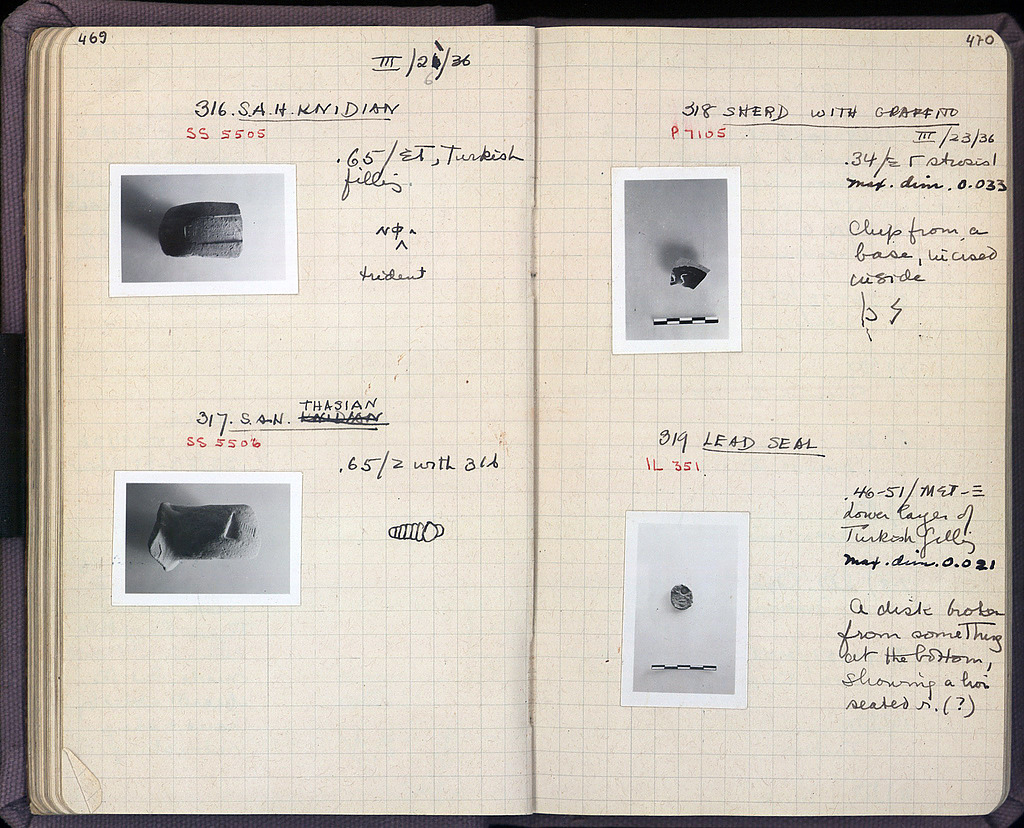 469
III/26/36
316. S.A.H. KNIDIAN
SS 5505
.65/ΣΤ, Turkish
filling.
ΝΦ
Λ
trident
317. S.A.H. THASIAN
SS 5506
.65/Ζ with 316
470
318 SHERD WITH GRAFFITO
P 7105
III/23/36
.34/Ξ Γ strosis 1
max. dim. 0.033
Chip from a
base, incised
inside
319 LEAD SEAL
IL 351
.46-51/ΜΣΤ-Ξ
Lower layer of
Turkish filling
max. dim. 0.021
A disk broken
from something
at the bottom,
showing a lion
seated r. (?)